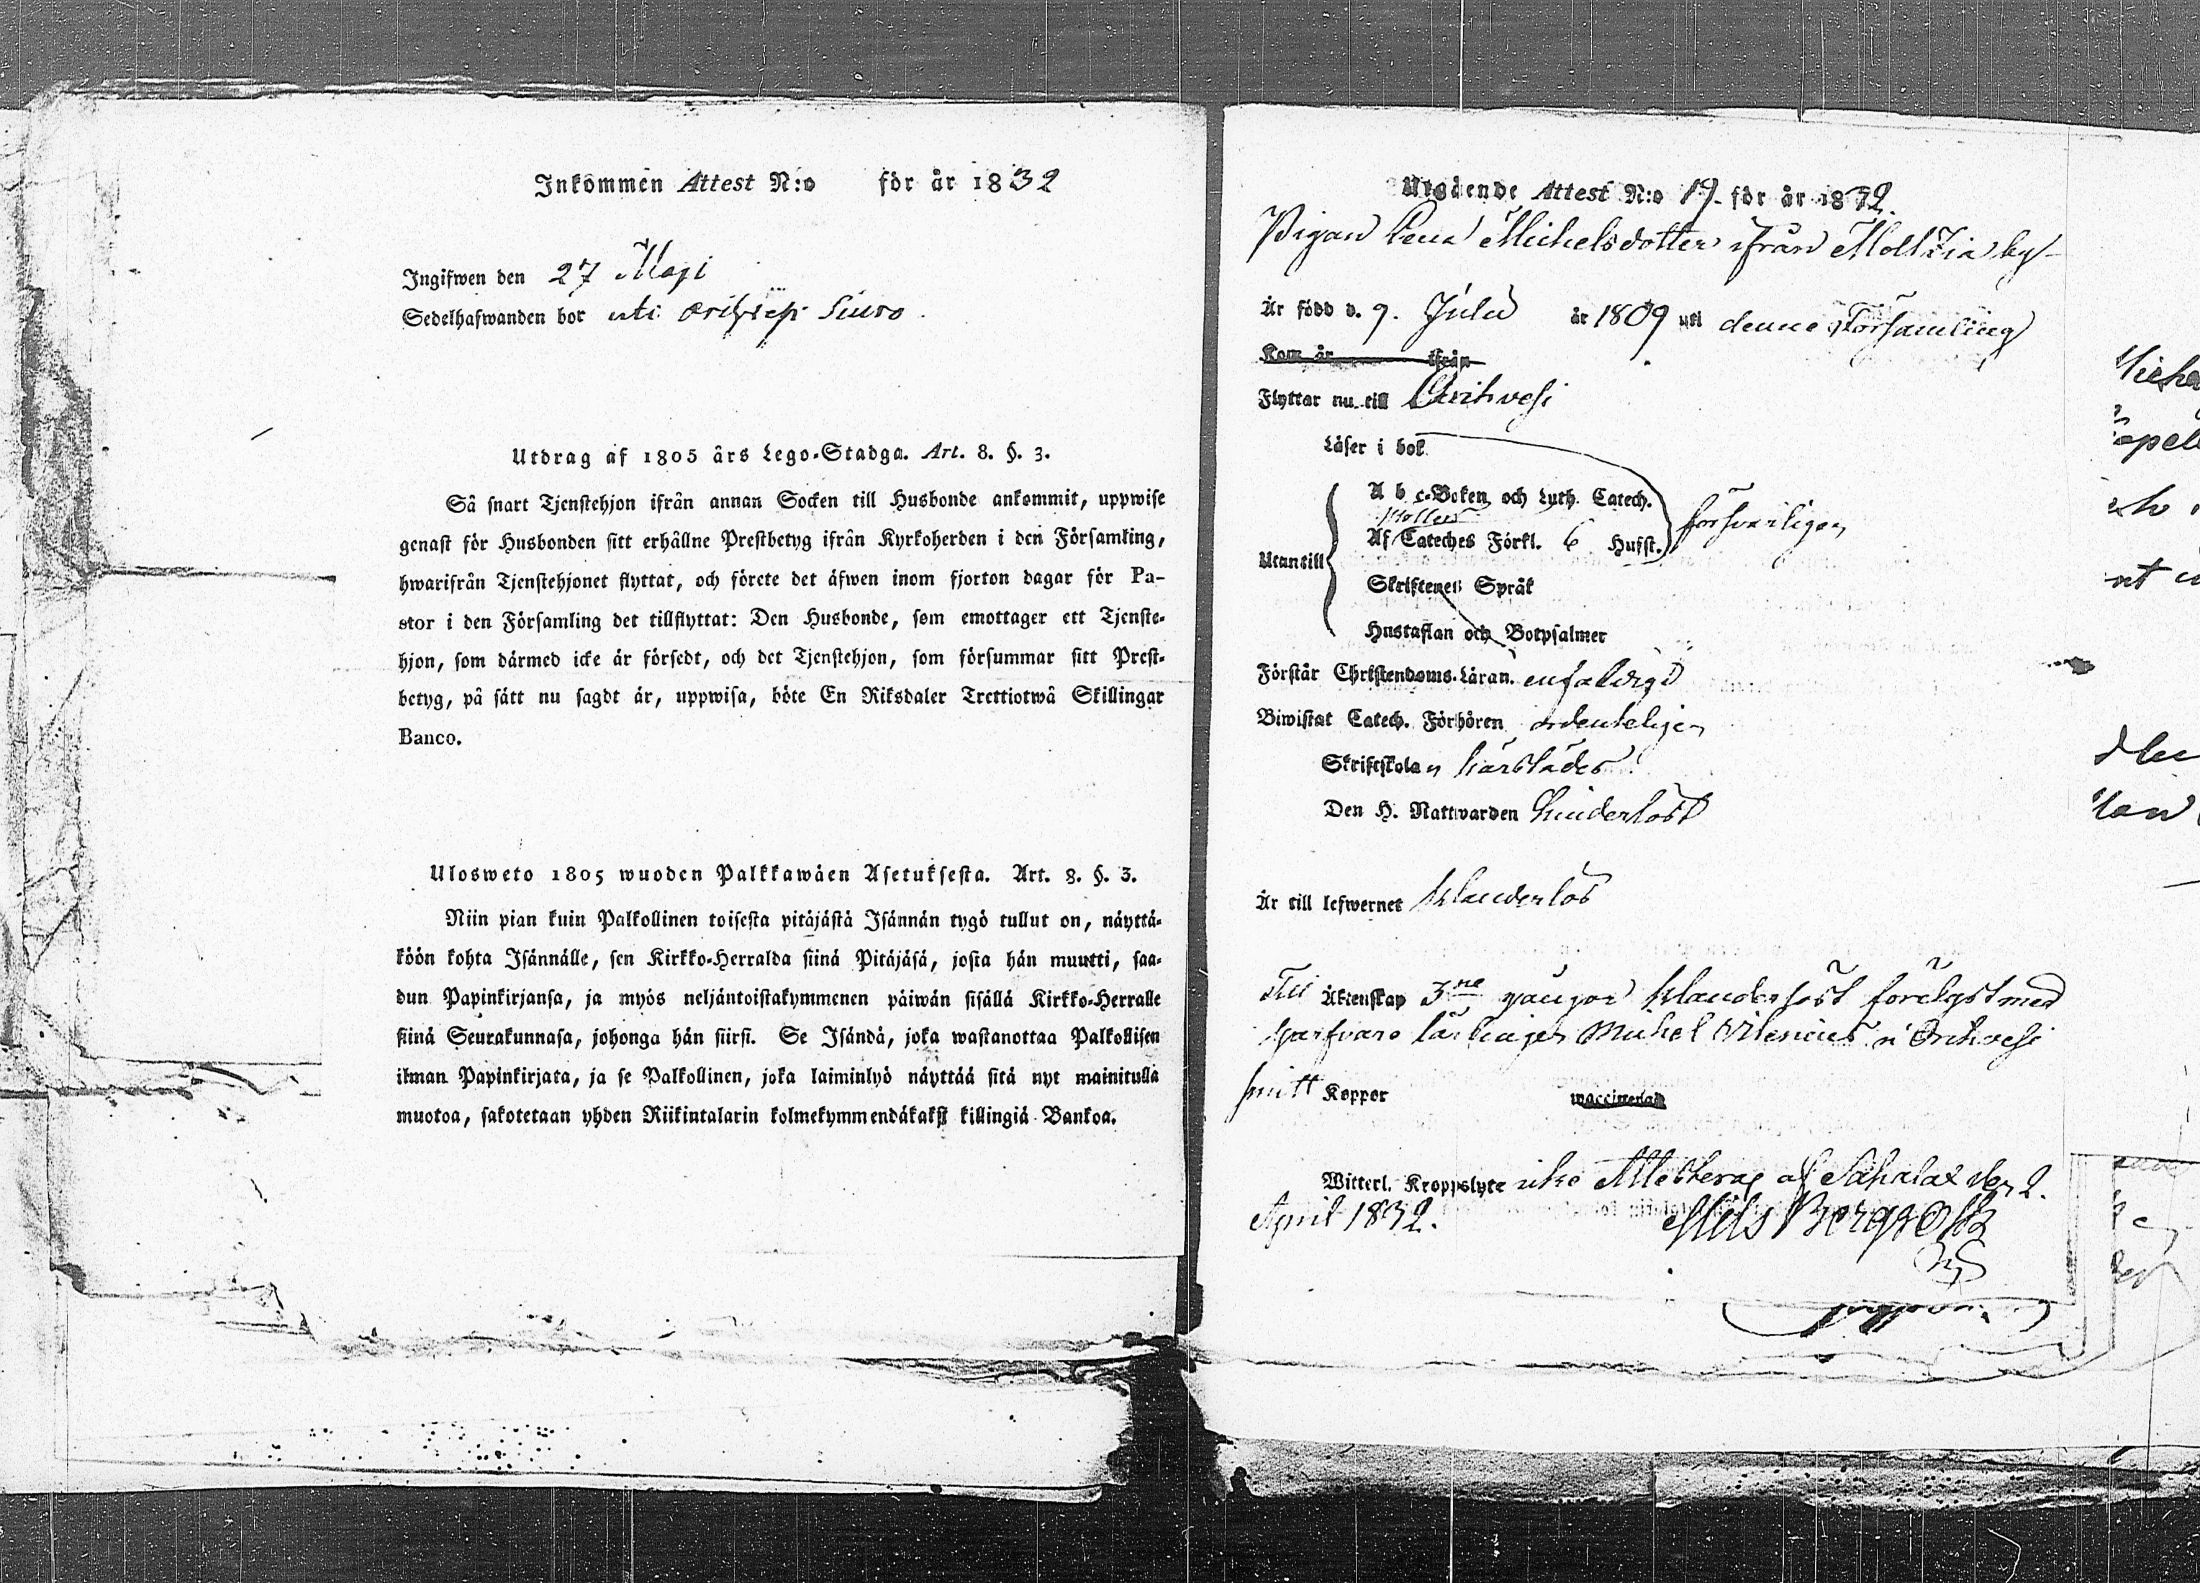 Inkommen Attest N:o för år 1832
Ingifwen den 27 Maji
Sedelhafwanden bor uti
Utdrag af 1805 års Lego-Stadga. Art. 8. §. 3.
Så snart Tjenstehjon ifrån annan Socken till Husbonde ankommit, uppwise
genast för Husbonden sitt erhållne Prestbetyg ifrån Kyrkoherden i den Församling,
hwarifrån Tjenstehjonet flyttat, och förete det äfwen inom fjorton dagar för Pa-
stor i den Församling det tillflyttat: Den Husbonde, som emottager ett Tjenste-
hjon, som därmed icke är försedt, och det Tjenstehjon, som försummar sitt Prest-
betyg, på sätt nu sagdt är, uppwisa, böte En Riksdaler Trettiotwå Skillingar
Banco.
Ulosweto 1805 wuoden Palkkawäen Asetuksesta. Art. 8. §. 3.
Niin pian kuin Palkollinen toisesta pitäjästä Isännän tygö tullut on, näyttä-
köön kohta Isännälle, sen Kirkko-Herralda siinä Pitäjäsä, josta hän muutti, saa-
dun Papinkirjansa, ja myös neljäntoistakymmenen päiwän sisällä Kirkko-Herralle
siinä Seurakunnasa, johonga hän siirsi. Se Isändä, joka wastanottaa Palkollisen
ilman Papinkirjata, ja se Palkollinen, joka laiminlyö näyttää sitä nyt mainitulla
muotoa, sakotetaan yhden Riikintalarin kolmekymmendäkaksi killingiä Bankoa.
Utgående Attest N:o 19 för år 1832.
Pigan Lena Michelsdotter ifrån by
Är född d. 9. Julii år 1809 uti denna Församling
Kom år ifrån
Flyttar nu till Orihvesi
Läser i bok
A b c-Boken och Luth. Catech. försvarligen
Utantill
Af Cateches Förkl. 6 Hufst.
Skriftenes Språk
Hustaflan och Botpsalmer
Förstår Christendoms-Läran enfaldigt
Biwistat Catech. Förhören ordenteligen
Skriftskolan
Den H. Nattwarden hinderlöst
Är till lefwernet klanderlös
Till Äktenskap 3ne gånger klanderlöst förelyst med
Garfvare Michel i Orihvesi
haft Koppor waccinerad
Witterl. Kroppslyte icke Attesteras af Sahalax den 2.
April 1832. Nils Bergroth